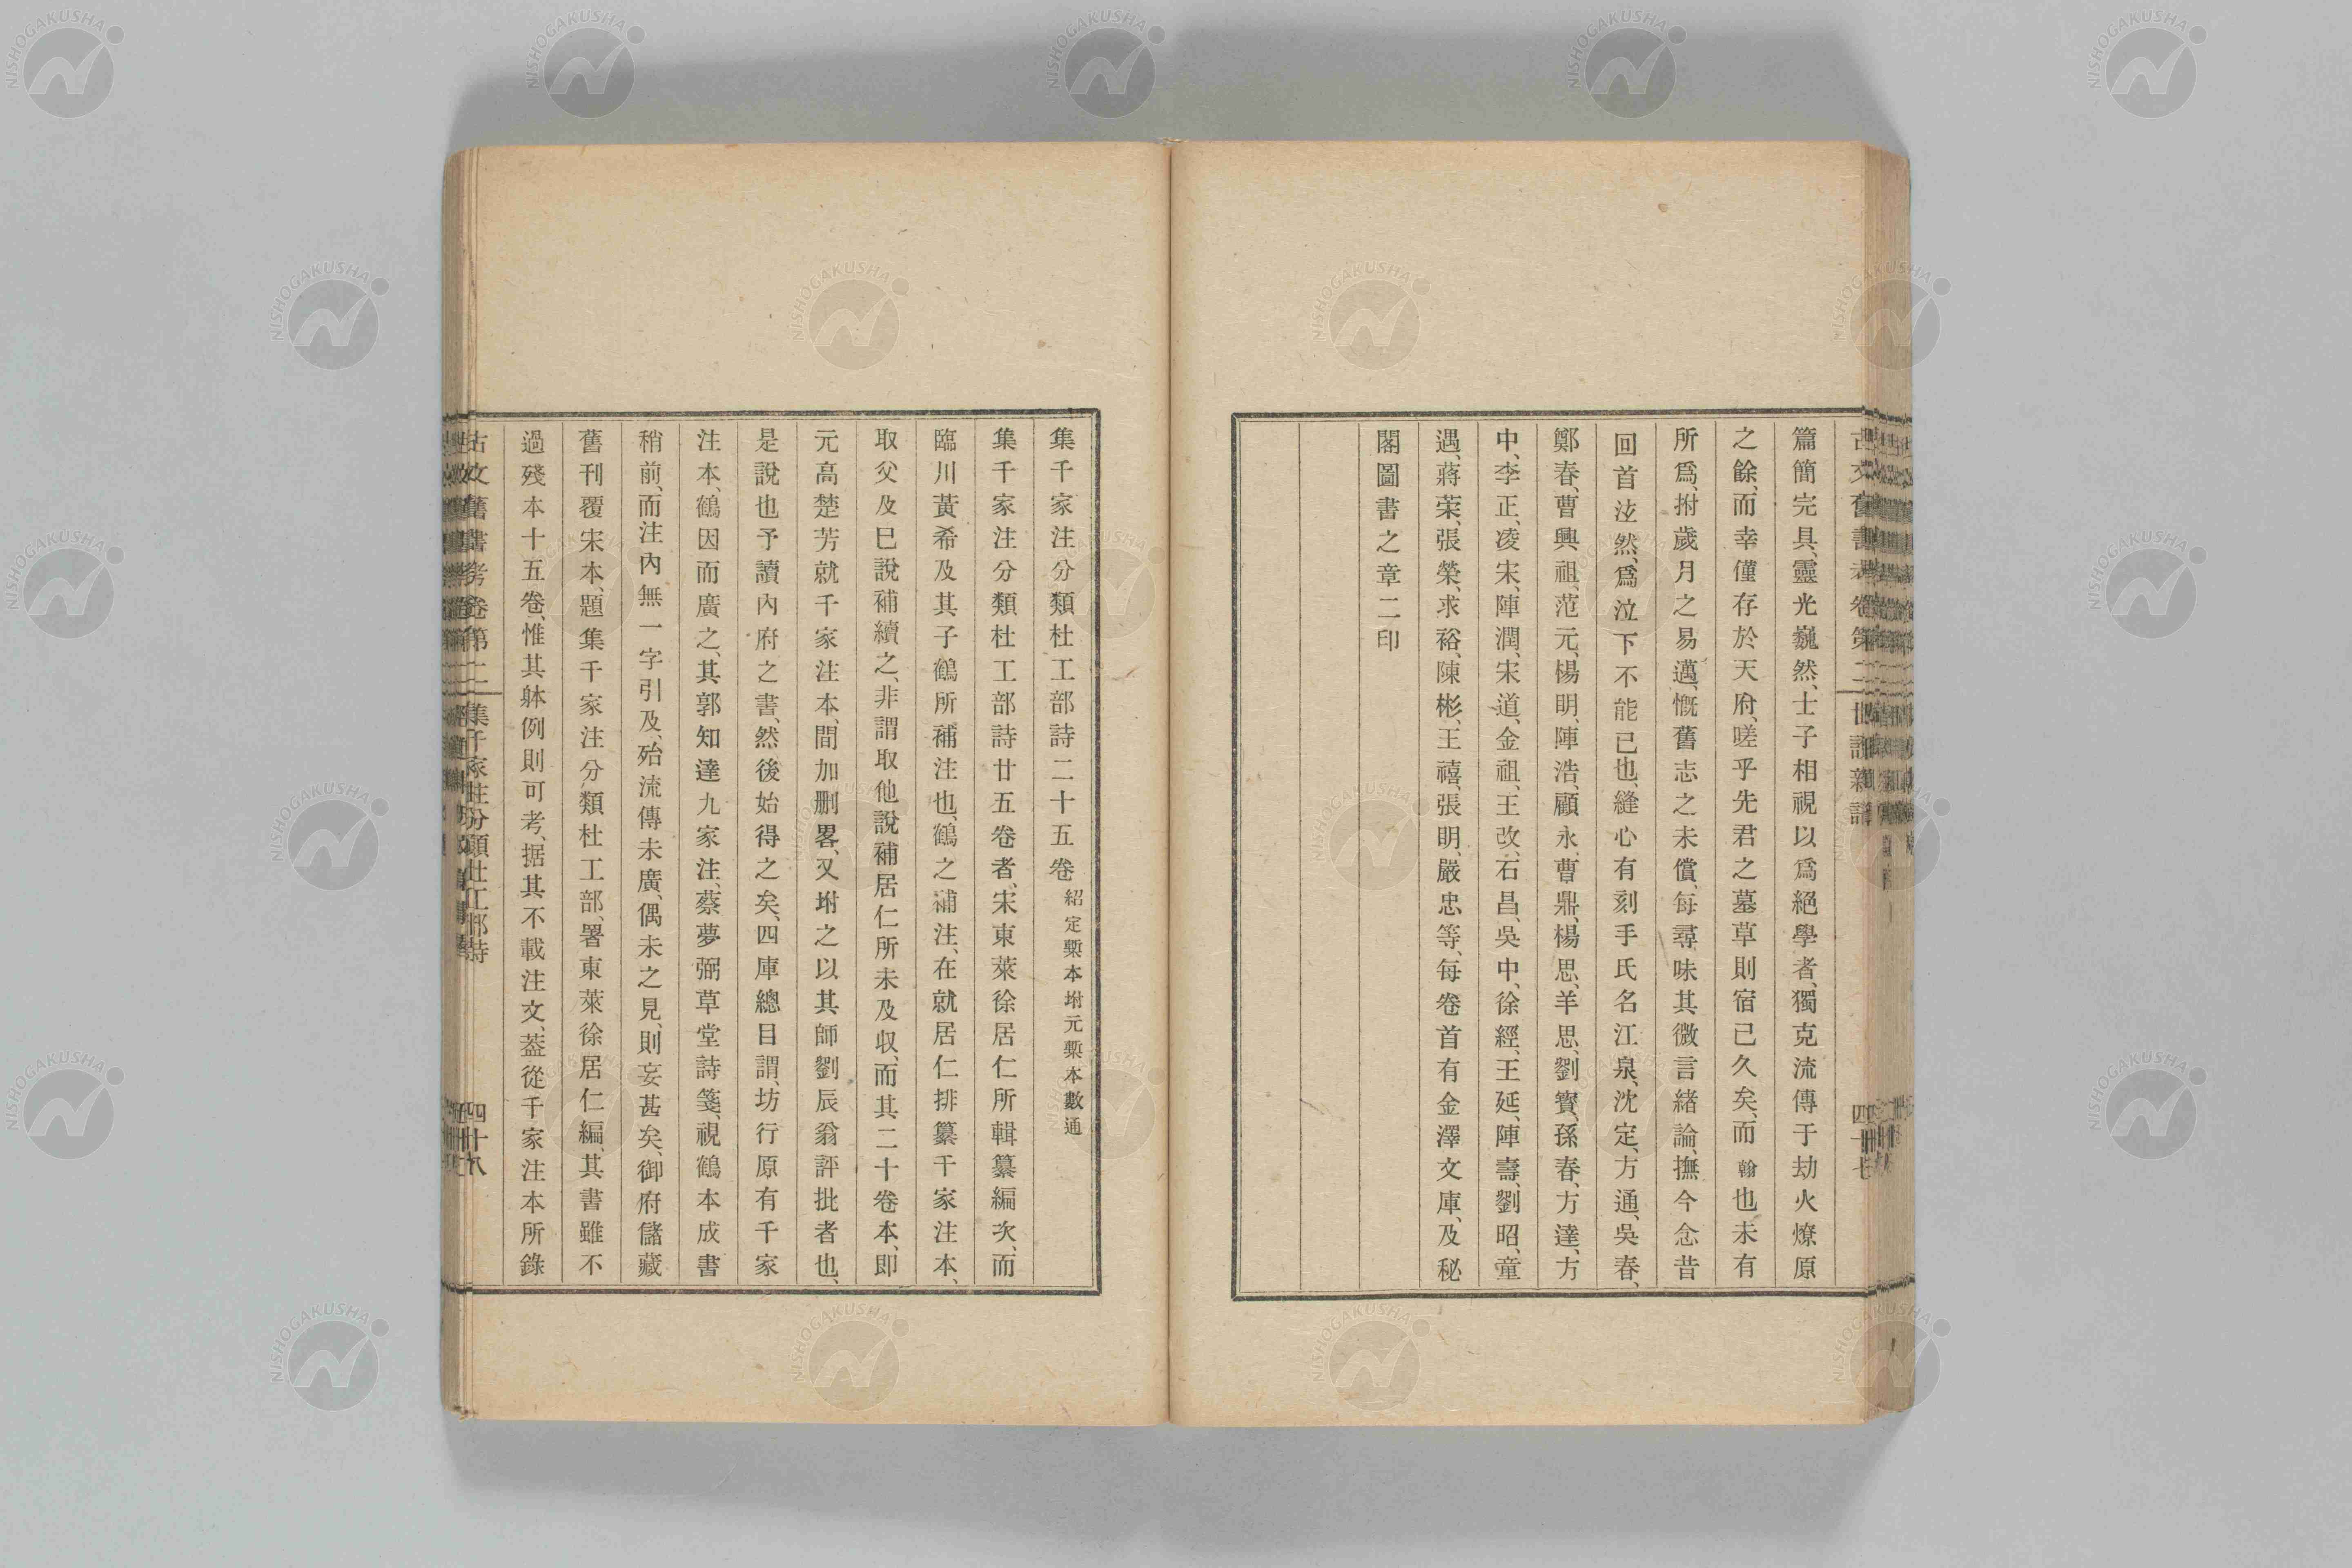 篇簡完具、靈光巍然、士子相視以爲絕學者、獨克流傳于劫火燎原
之餘、而幸僅存於天府、嗟乎先君之墓草則宿已久矣、而翰也未有
所爲、拊歲月之易邁、慨舊志之未償、每尋味其微言緒論、撫今念昔
回首泫然、爲泣下不能已也、縫心有刻手氏名江泉、沈定、方通、吳春、
鄭春、曹興祖、范元、楊明、陣浩、顧永、曹鼎、楊思、羊思、劉寶、孫春、方達、方
中、李正、凌宋、陣潤、宋道、金祖、王改、石昌、吳中、徐經、王延、陣壽、劉昭、童
遇、蔣荣、張榮、求裕、陳彬、王禧、張明、嚴忠等、每卷首有金澤文庫、及秘
閣圖書之章二印
集千家注分類杜工部詩二十五卷 紹定槧本坿元槧本數通
集千家注分類杜工部詩廿五卷者、宋東萊徐居仁所輯纂編次、而
臨川黃希及其子鶴所補注也、鶴之補注、在就居仁排纂千家注本、
取父及巳說補續之、非謂取他說補居仁所未及収、而其二十卷本、即
元高楚芳就千家注本、間加刪畧、又坿之以其師劉辰翁評批者也、
是說也予讀內府之書、然後始得之矣、四庫總目謂、坊行原有千家
注本、鶴因而廣之、其郭知達九家注、蔡夢弼草堂詩箋、視鶴本成書
稍前、而注內無一字引及、殆流傳未廣、偶未之見、則妄甚矣、御府儲藏
舊刊覆宋本、題集千家注分類杜工部、署東萊徐居仁編、其書雖不
過殘本十五卷、惟其躰例則可考、据其不載注文、蓋從千家注本所錄
古文舊書考卷第二 集千家注分類杜工部詩 四十八